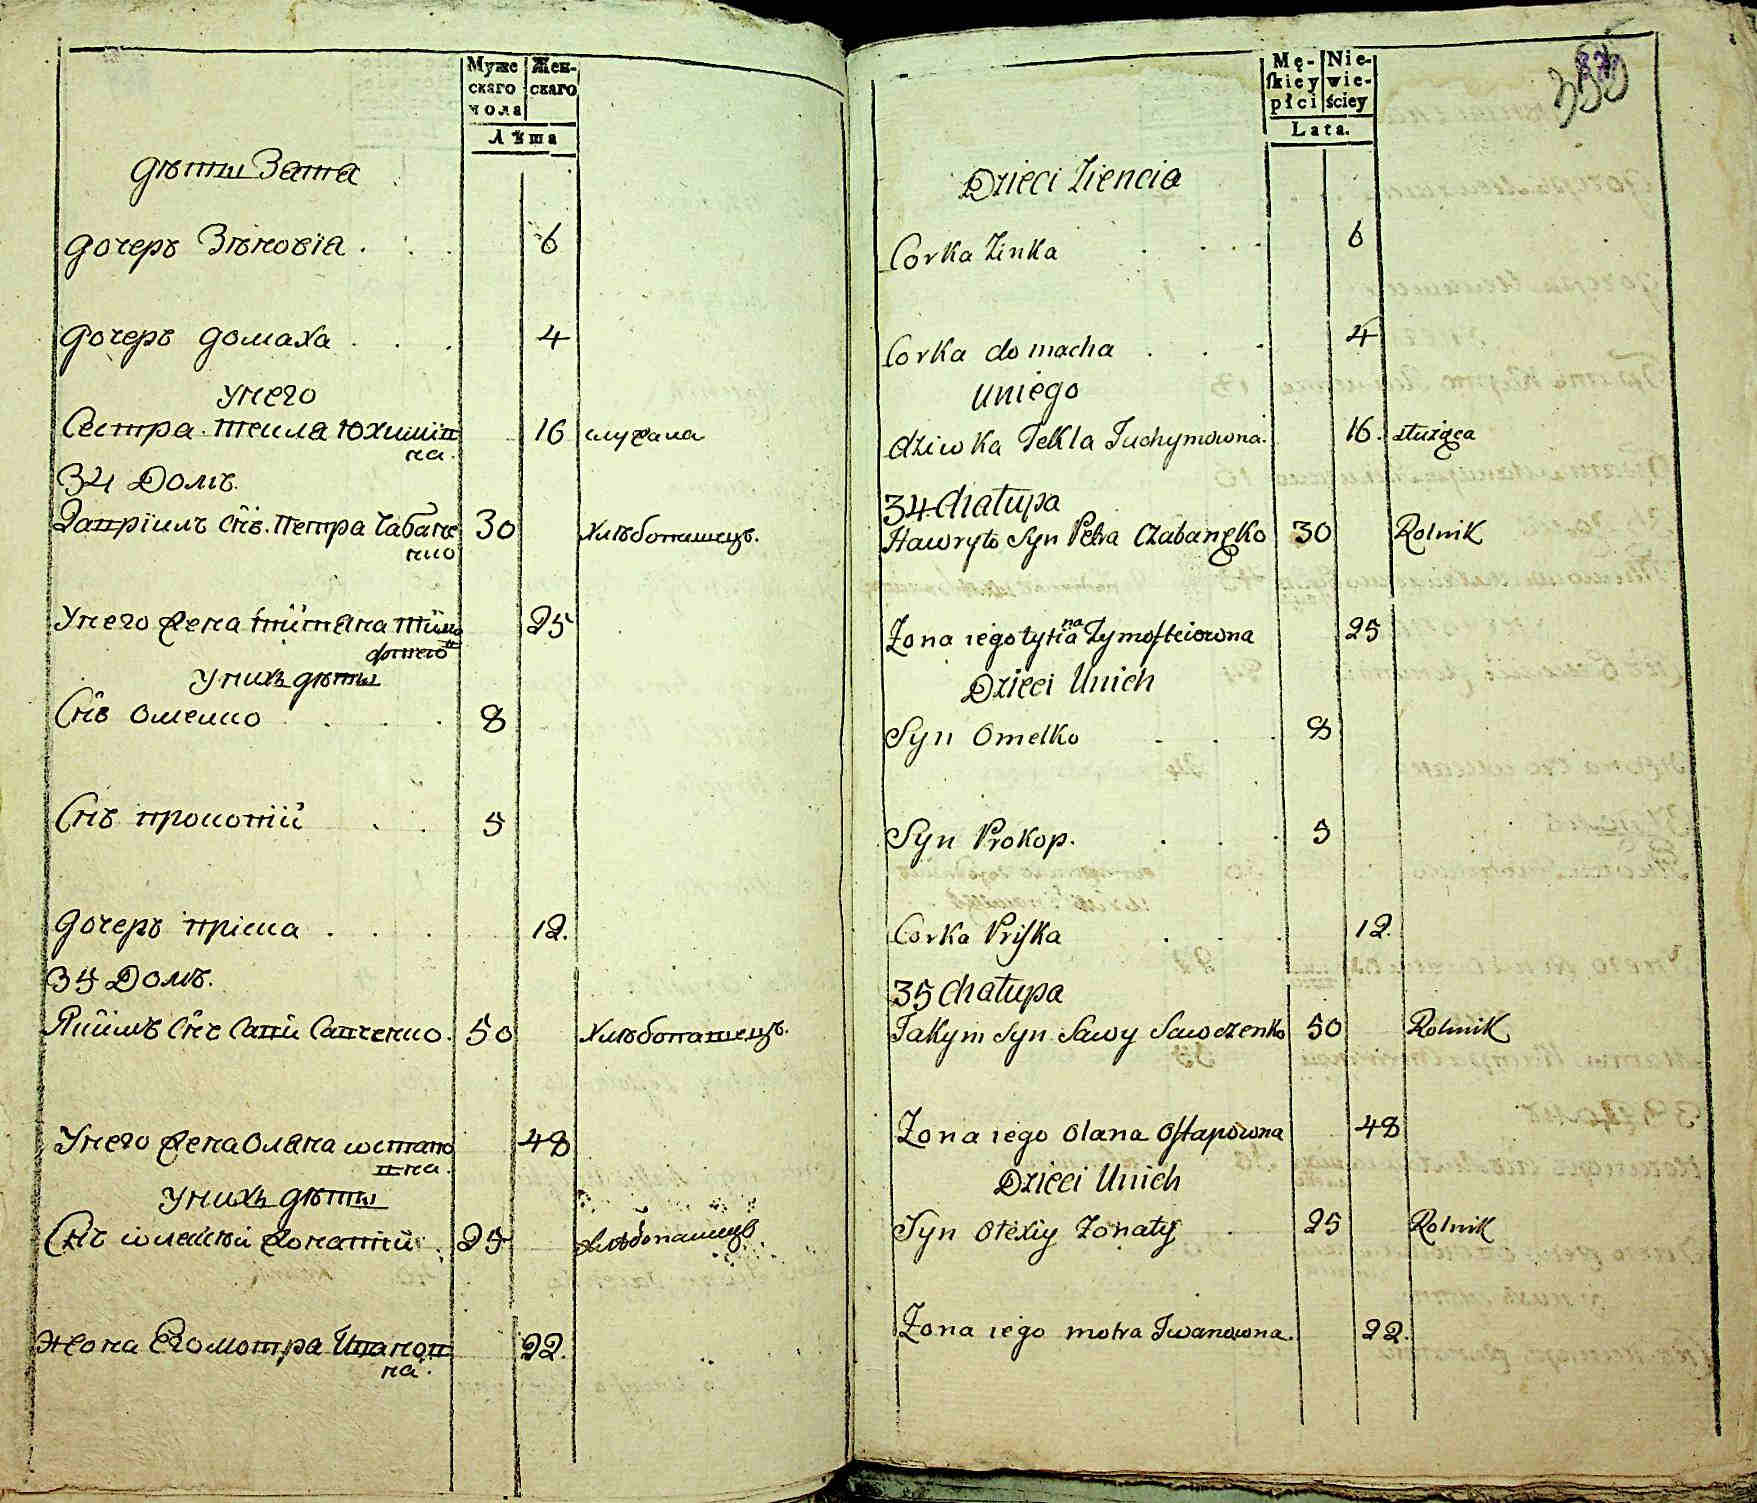 Муже Жен-
скаго скаго
пола
Лѣта
дѣти Зятя
дочеръ Зѣновія . . . 6
дочеръ домаха . . . 4
унего
Сестра текля юхимів 16 служала
на.
34 Домъ.
Гавріилъ Снъ. Петра Чабане 30 Хлѣбопашецъ.
нко
Унего жена тітяна тімо 25
фѣево
Унихъ дѣти
Снъ омелко . . . 8
Снъ прокопій . . 5
дочеръ пріска . . . 12.
35 Домъ.
Якімъ Снъ Сави Савченко. 50 Хлѣбопашецъ.
Унего жена Оляна юстапо 48
вна.
Унихъ дѣти
Снъ юлексѣй жонатій . 25 хлѣбопашецъ.
жона Его мотра Іванов 22.
на.
355
Mę- Nie-
ſkiey wie-
płci ściey
Lata.
Dzieci Ziencia
Corka Zinka . . . . 6
Corka domacha . . . 4
uniego
dziwka Tekla Juchymowna. 16. służąca
34 chatupa
Hawryło Syn Petra Czabanęko 30 Rolnik
na
Zona iego tytiа Tymoſteiowna 25
Dzieci Unich
Syn Omelko . . . 8
Syn Prokop. . . . 5
Corka Priſka . . . 12.
35 chatupa
Jakym Syn Sawy Sawczenko 50 Rolnik
Zona iego Olana Oſtapowna 48
Dzieci Unich
Syn Olexiy Zonaty . 25 Rolnik
Zona iego motra Iwanowna. 22.